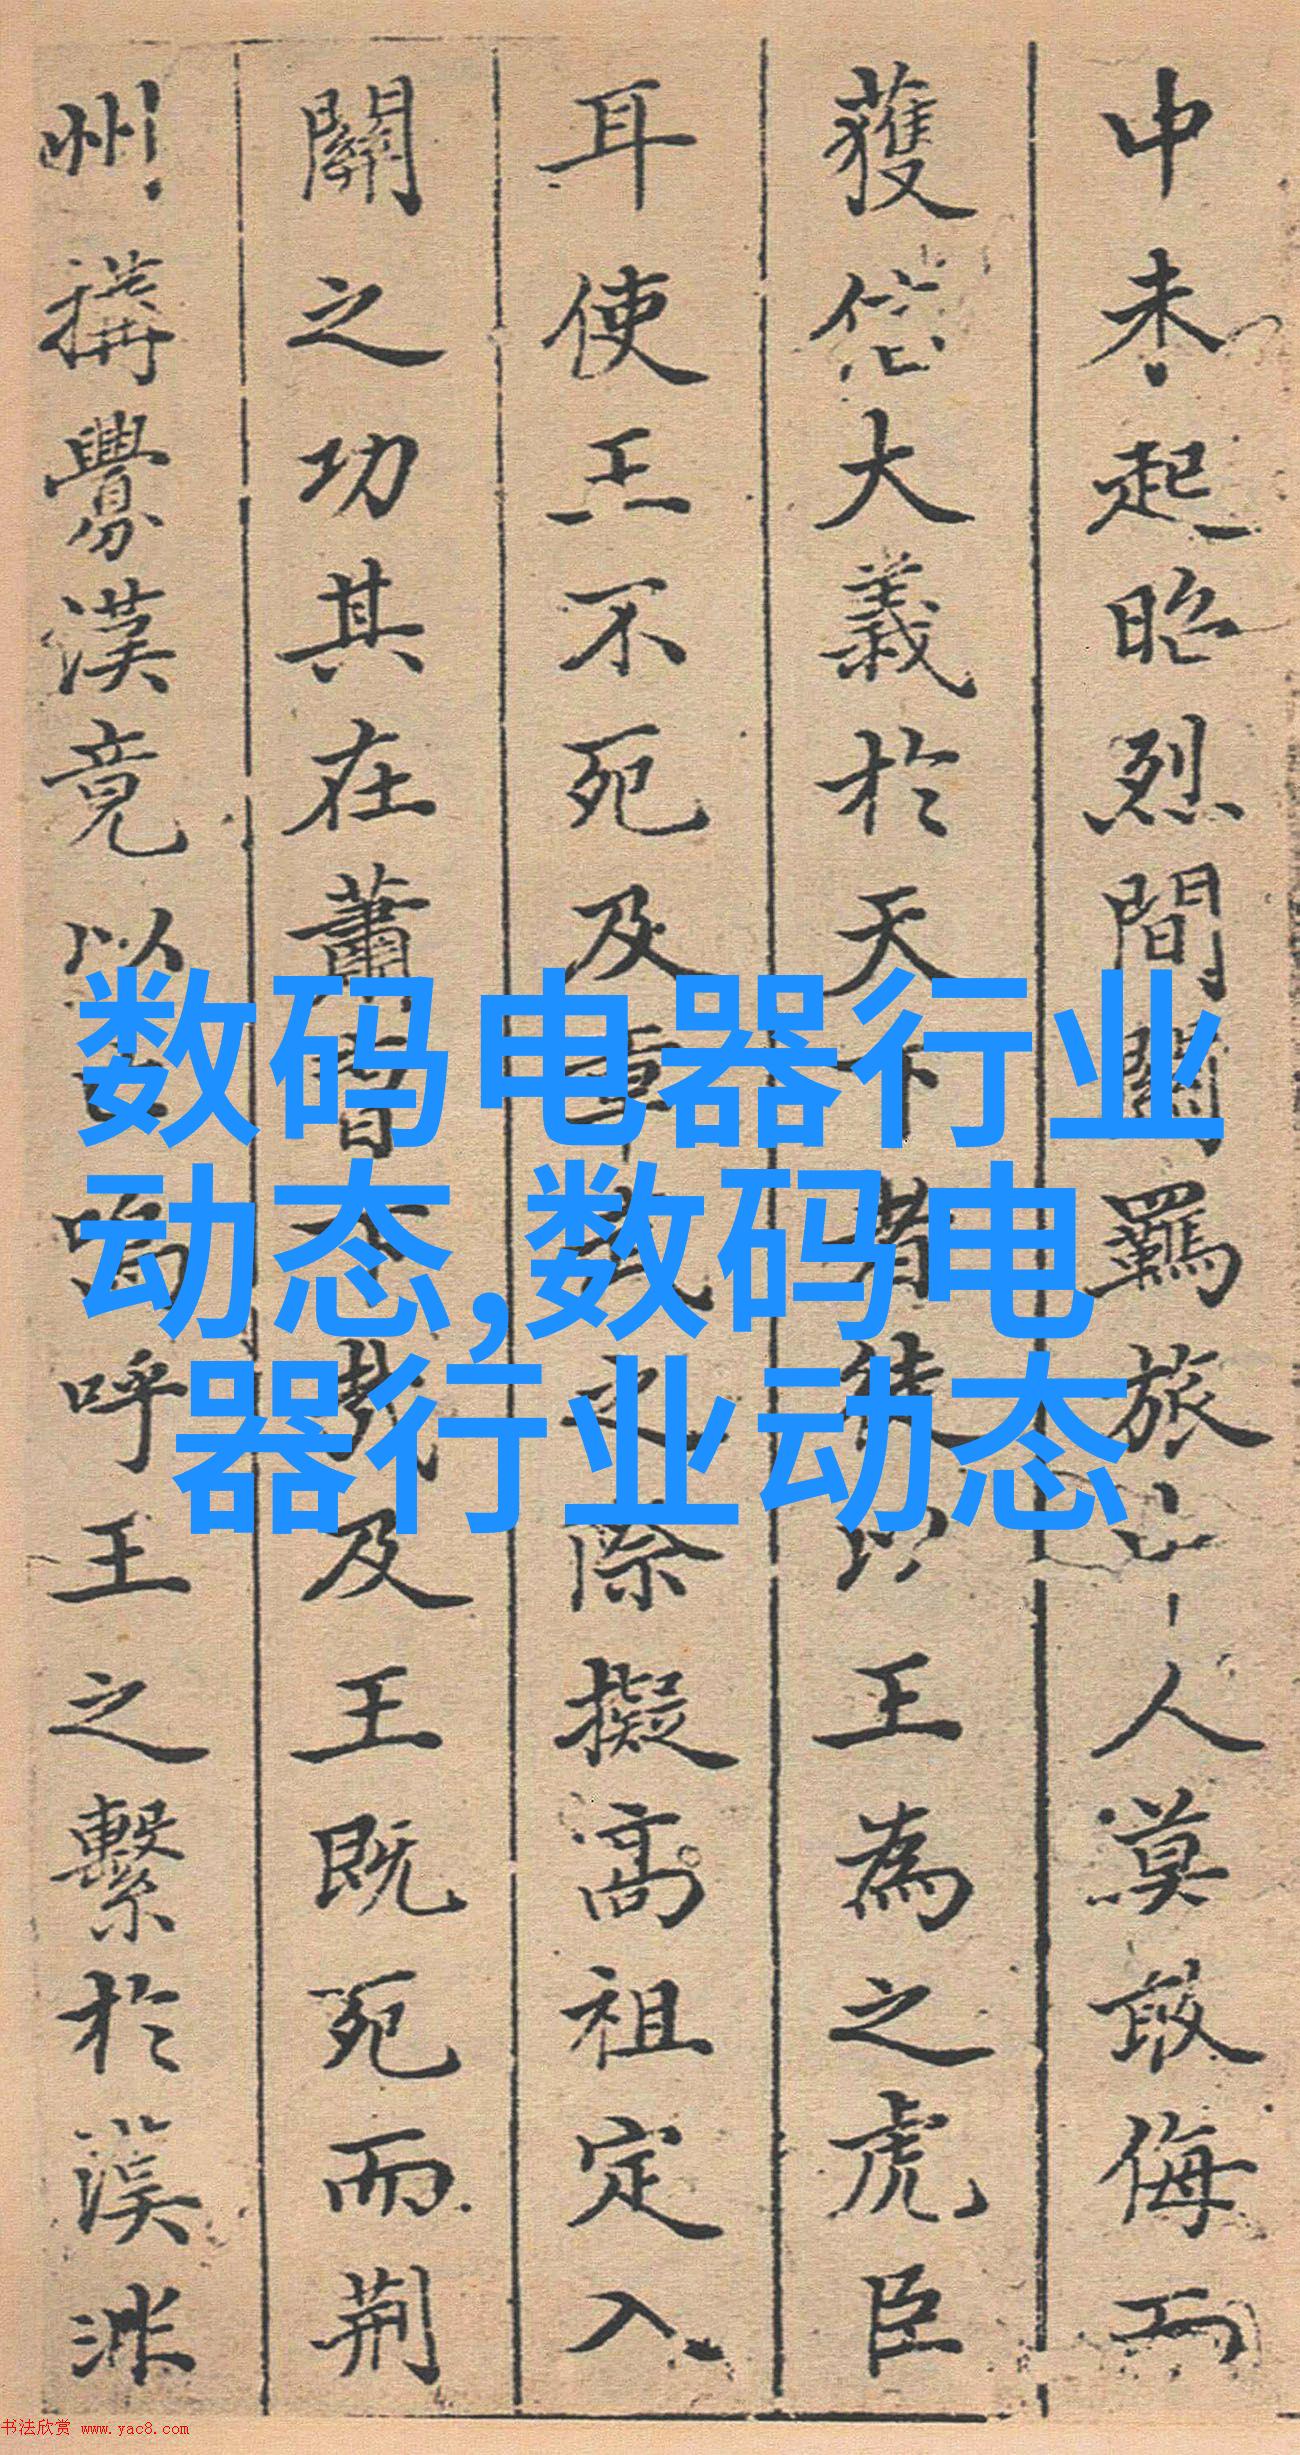 中未起昭烈間關羈旅之人莫敢侮而
獲信大義於天下者徒以王為之虎臣
耳使王不死及車駕之際擬高祖定入
關之功其在蕭曹下哉及王既死而荊
州搆釁漢竟以亡嗚呼王之繫於漢浙
数码电器行业
动态,数码电
器行业动态
书法欣赏 www.yac8.com